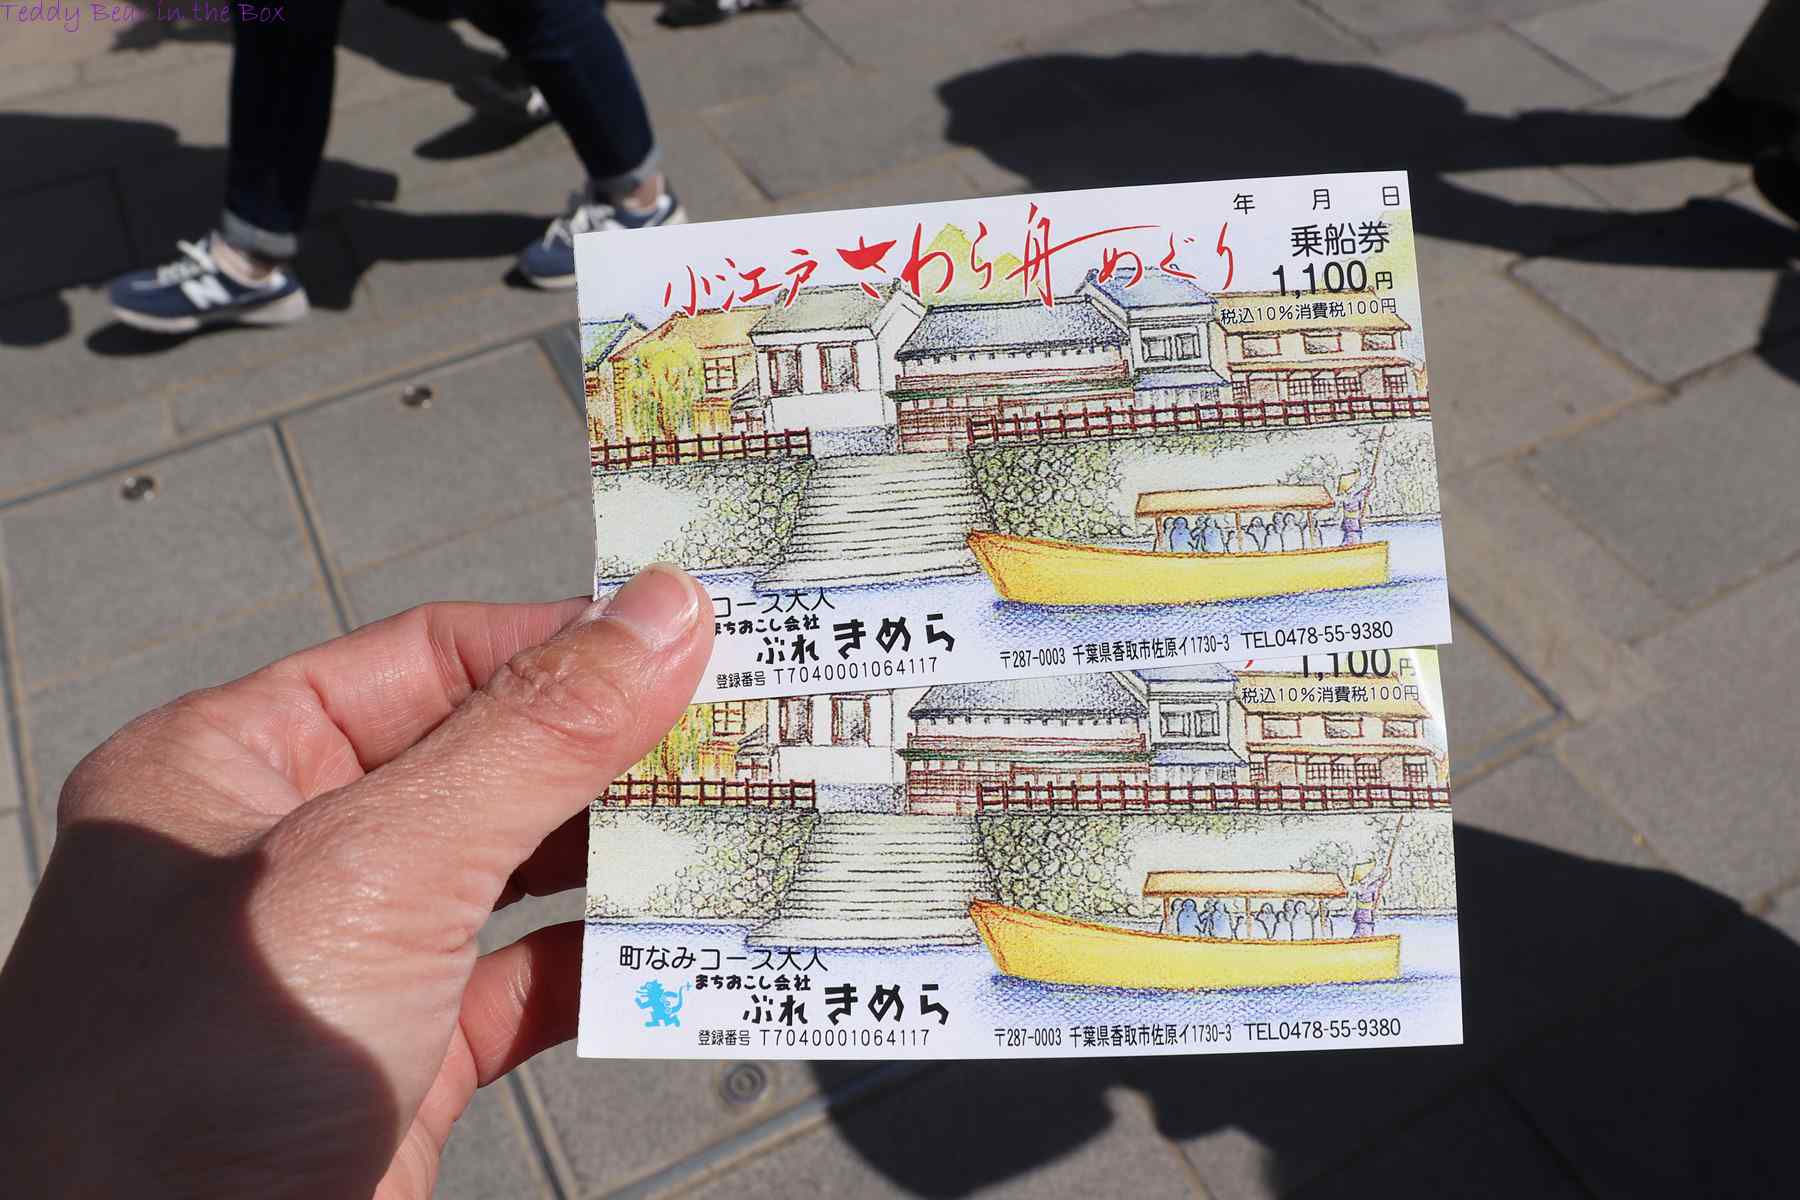 Teddy Bear in the Box
年 月 日
小江戸さわら舟めぐり
乗船券
1,100円
税込10%消費税100円
コース大人
まちおこし会社
ぶれきめら
登録番号 T7040001064117
〒287-0003 千葉県香取市佐原イ1730-3 TEL0478-55-9380
1,100円
税込10%消費税100円
町なみコース大人
まちおこし会社
ぶれきめら
登録番号 T7040001064117
〒287-0003 千葉県香取市佐原イ1730-3 TEL0478-55-9380
N